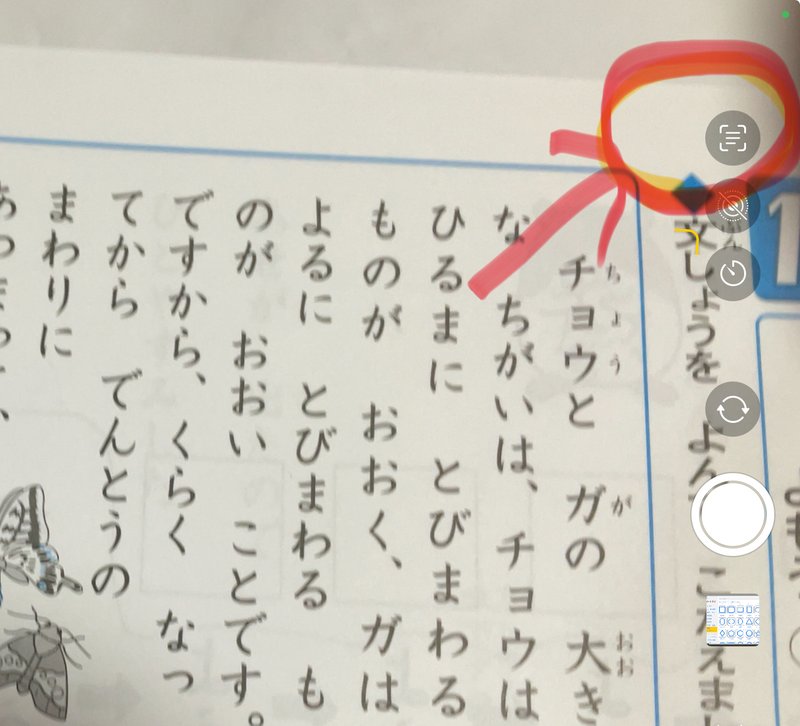 文しょうを よん
チョウと ガの 大き
な ちがいは、チョウは
ひるまに とびまわる
ものが おおく、ガは
よるに とびまわる も
のが おおい ことです。
ですから、くらく なっ
てから でんとうの
まわりに